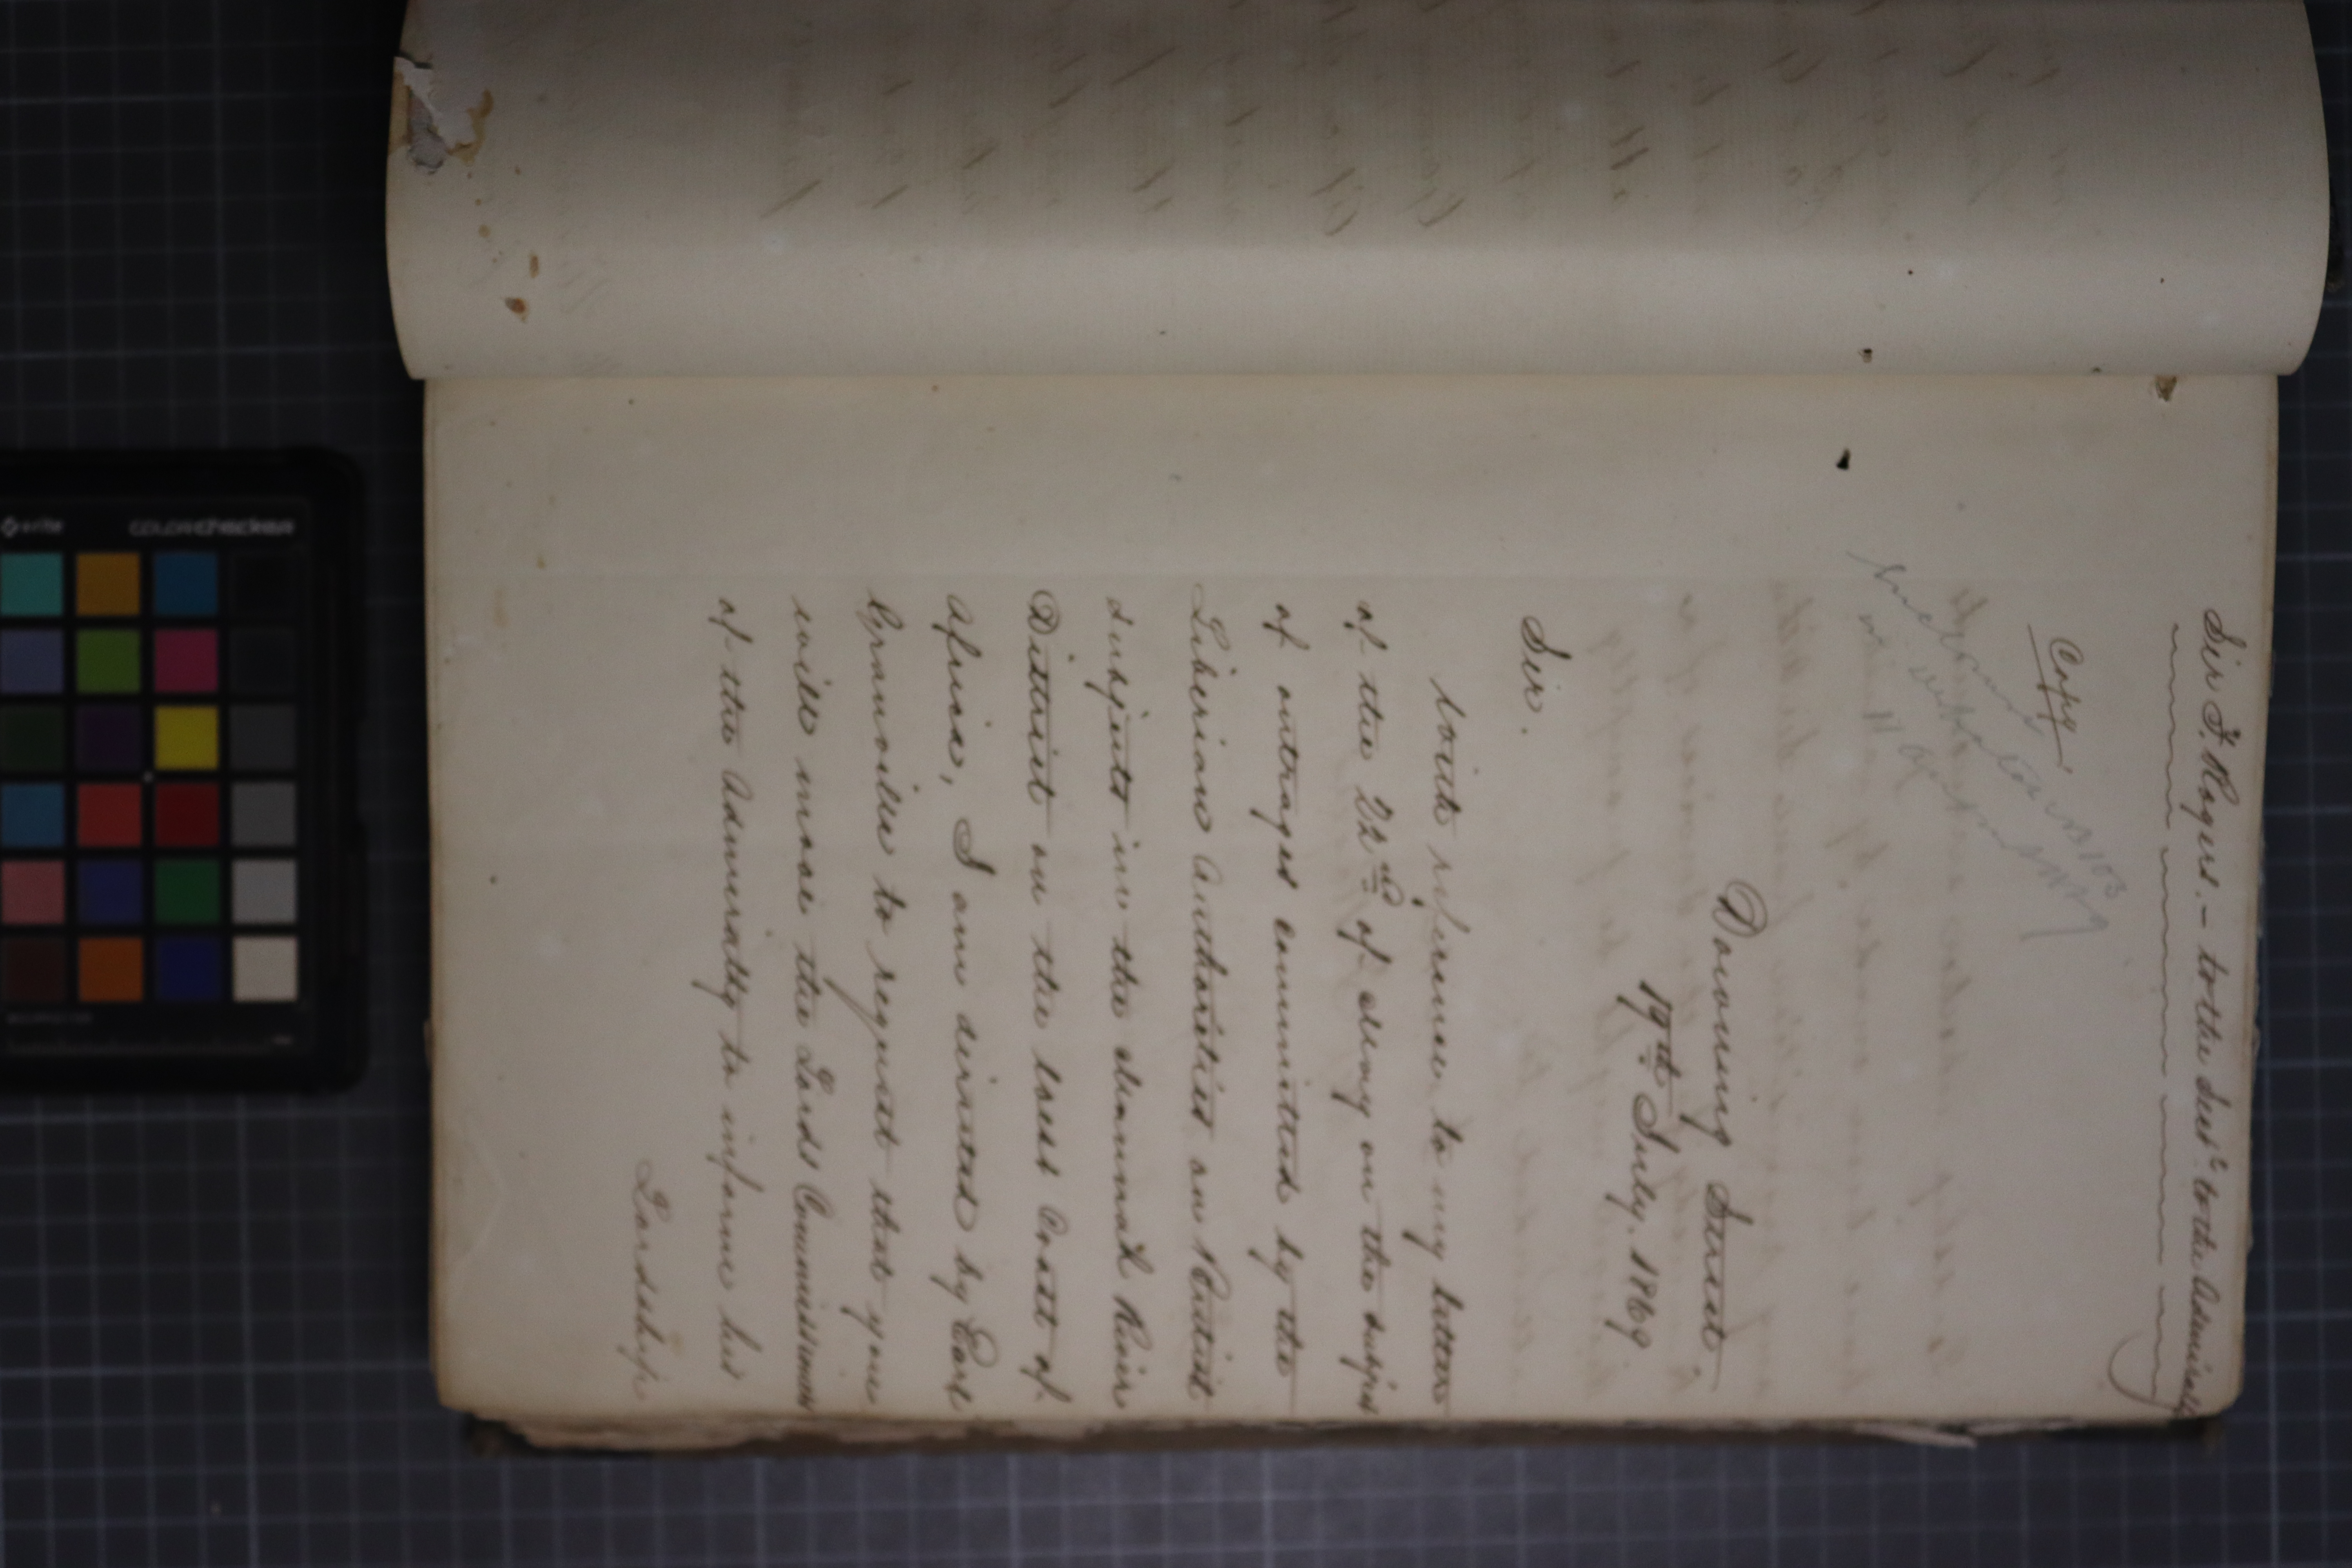 Sir F. Rogers. - to the Secy. to the Admiralty
Copy
Downing Street.
19th July. 1869.
Sir.
With reference to my letter
of the 22nd of May on the subject
of outrages committed by the
Liberian Authorities on British
Subjects in the Mannah River
District on the West Coast of
Africa, I am directed by Earl
Granville to request that you
will move the Lords Commissioners
of the Admiralty to inform his
Lordship
colorchecker